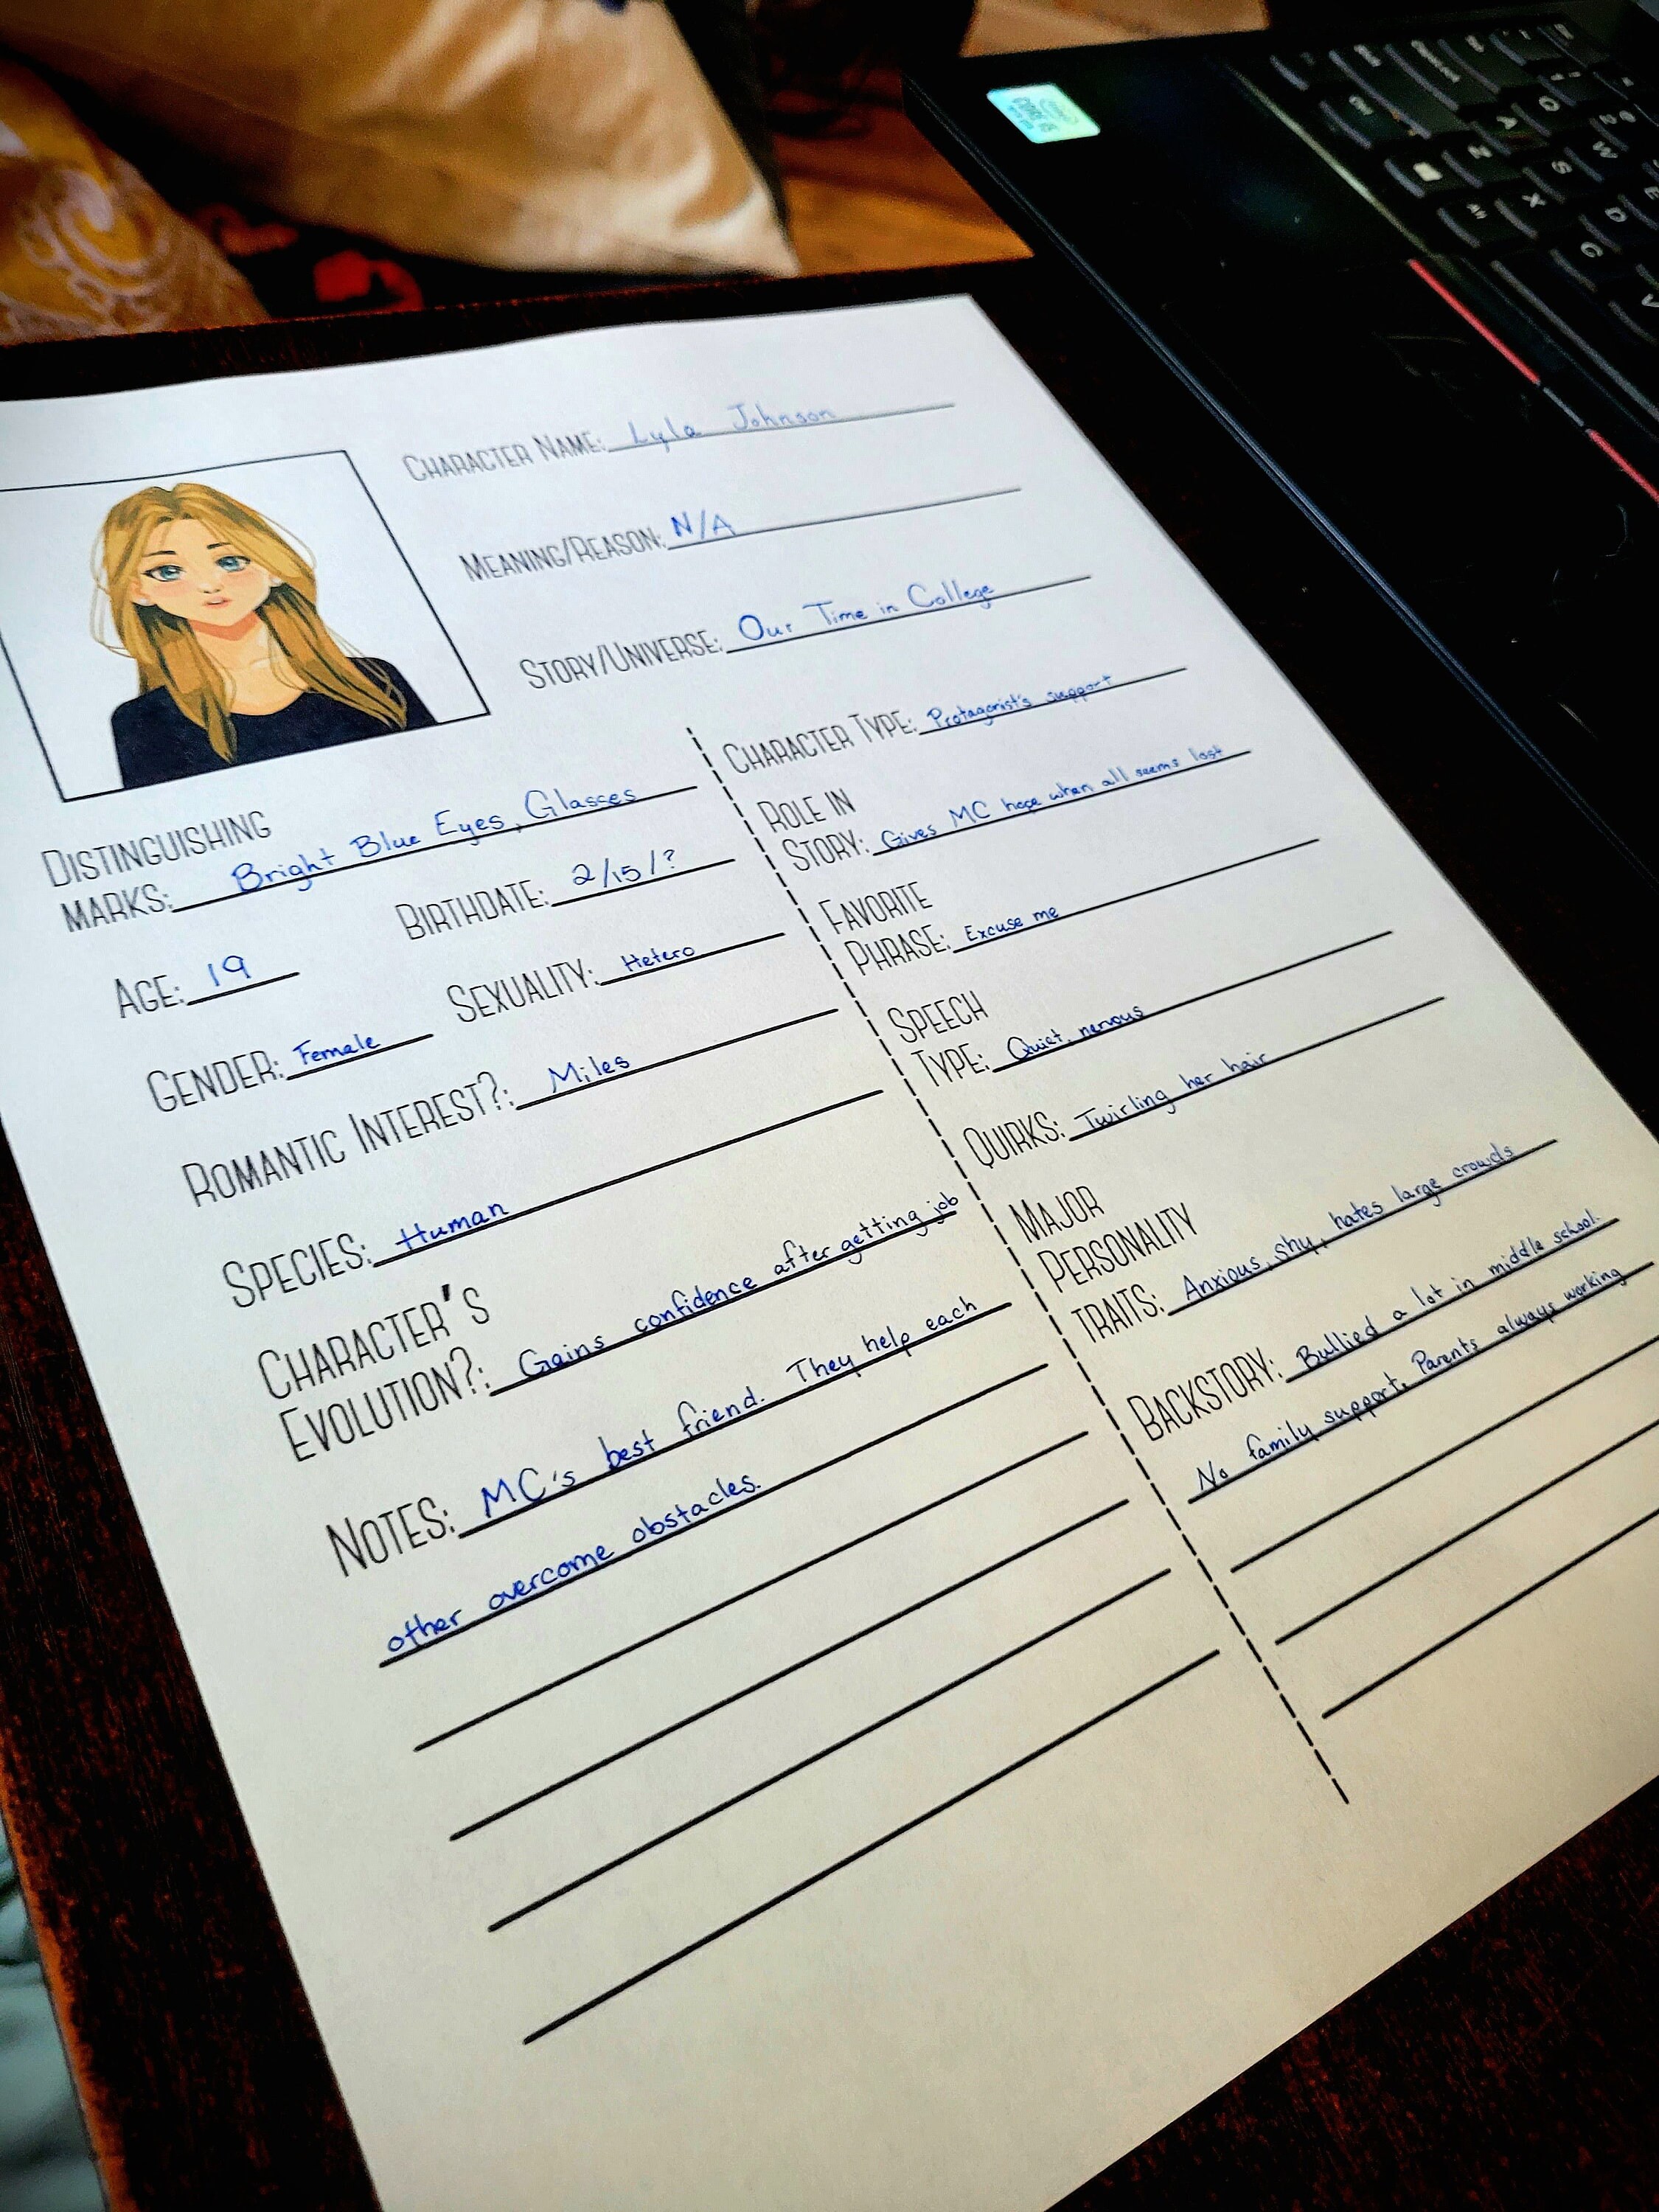 Character Name: Lyla Johnson
Meaning/Reason: N/A
Story/Universe: Our Time in College
Distinguishing
marks: Bright Blue Eyes, Glasses
Age: 19 Birthdate: 2/15/?
Gender: Female Sexuality: Hetero
Romantic Interest?: Miles
Species: Human
Character's
Evolution?: Gains confidence after getting job
Notes: MC's best friend. They help each
other overcome obstacles.
Character Type: Protagonist's support
Role in
Story: Gives MC hope when all seems lost
Favorite
Phrase: Excuse me
Speech
Type: Quiet, nervous
Quirks: Twirling her hair
Major
Personality
traits: Anxious, shy, hates large crowds
Backstory: Bullied a lot in middle school.
No family support. Parents always working
CORE i5
A
Q
Z
S
W
X
D
E
C
V